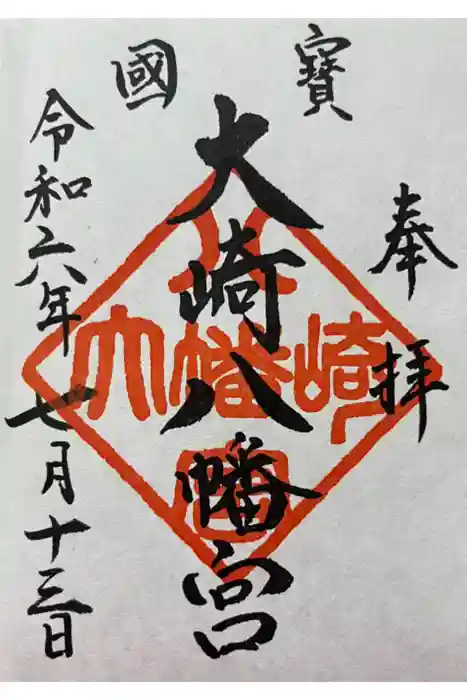 國寶
奉拝
大崎八幡宮
令和六年七月十三日
大崎八幡宮